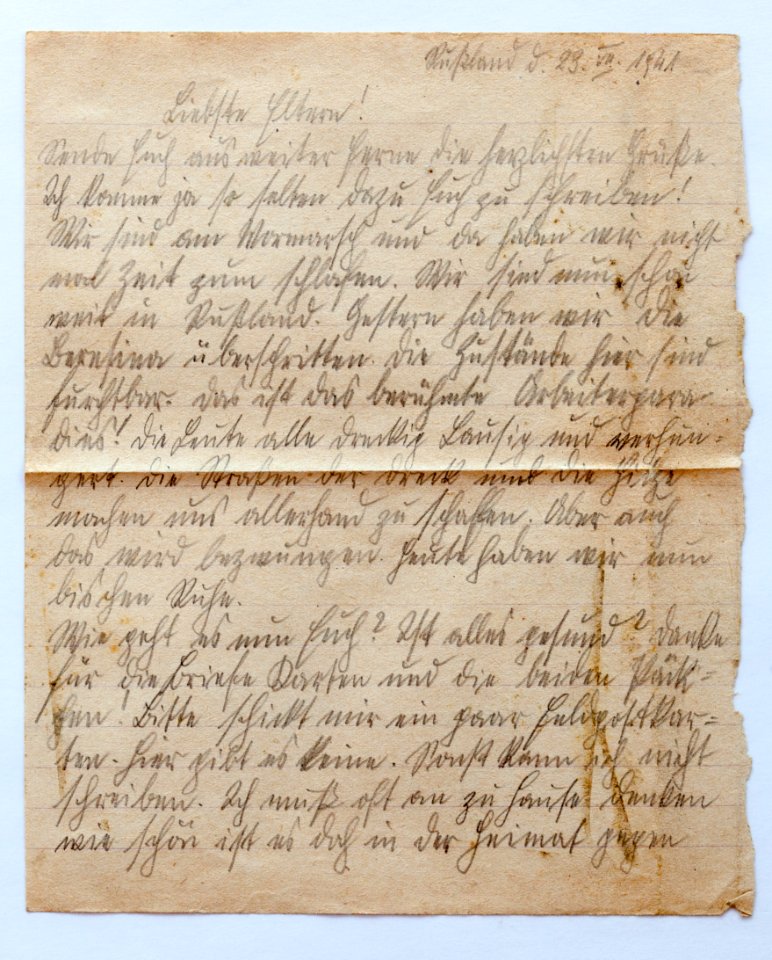 Rußland d. 23. VII. 1941
Liebste Eltern!
Sende Euch aus weiter Ferne die herzlichsten Grüße.
Ich komme ja so selten dazu Euch zu schreiben!
Wir sind am Vormarsch und da haben wir nicht
mal Zeit zum schlafen. Wir sind nun schon
weit in Rußland. Gestern haben wir die
Beresina überschritten. Die Zustände hier sind
furchtbar. Das ist das berühmte Arbeiterpara-
dies! Die Leute alle dreckig Lausig und verhun-
gert. Die Straßen der Dreck und die Hitze
machen uns allerhand zu schaffen. Aber auch
das wird bezwungen. Heute haben wir nun
bischen Ruhe.
Wie geht es nun Euch? Ist alles gesund? Danke
für die Briefe Karten und die beiden Päck-
chen. Bitte schickt mir ein paar Feldpostkar-
ten. Hier gibt es keine. Sonst kann ich nicht
schreiben. Ich muß oft an zu Hause denken
wie schön ist es doch in der Heimat gegen